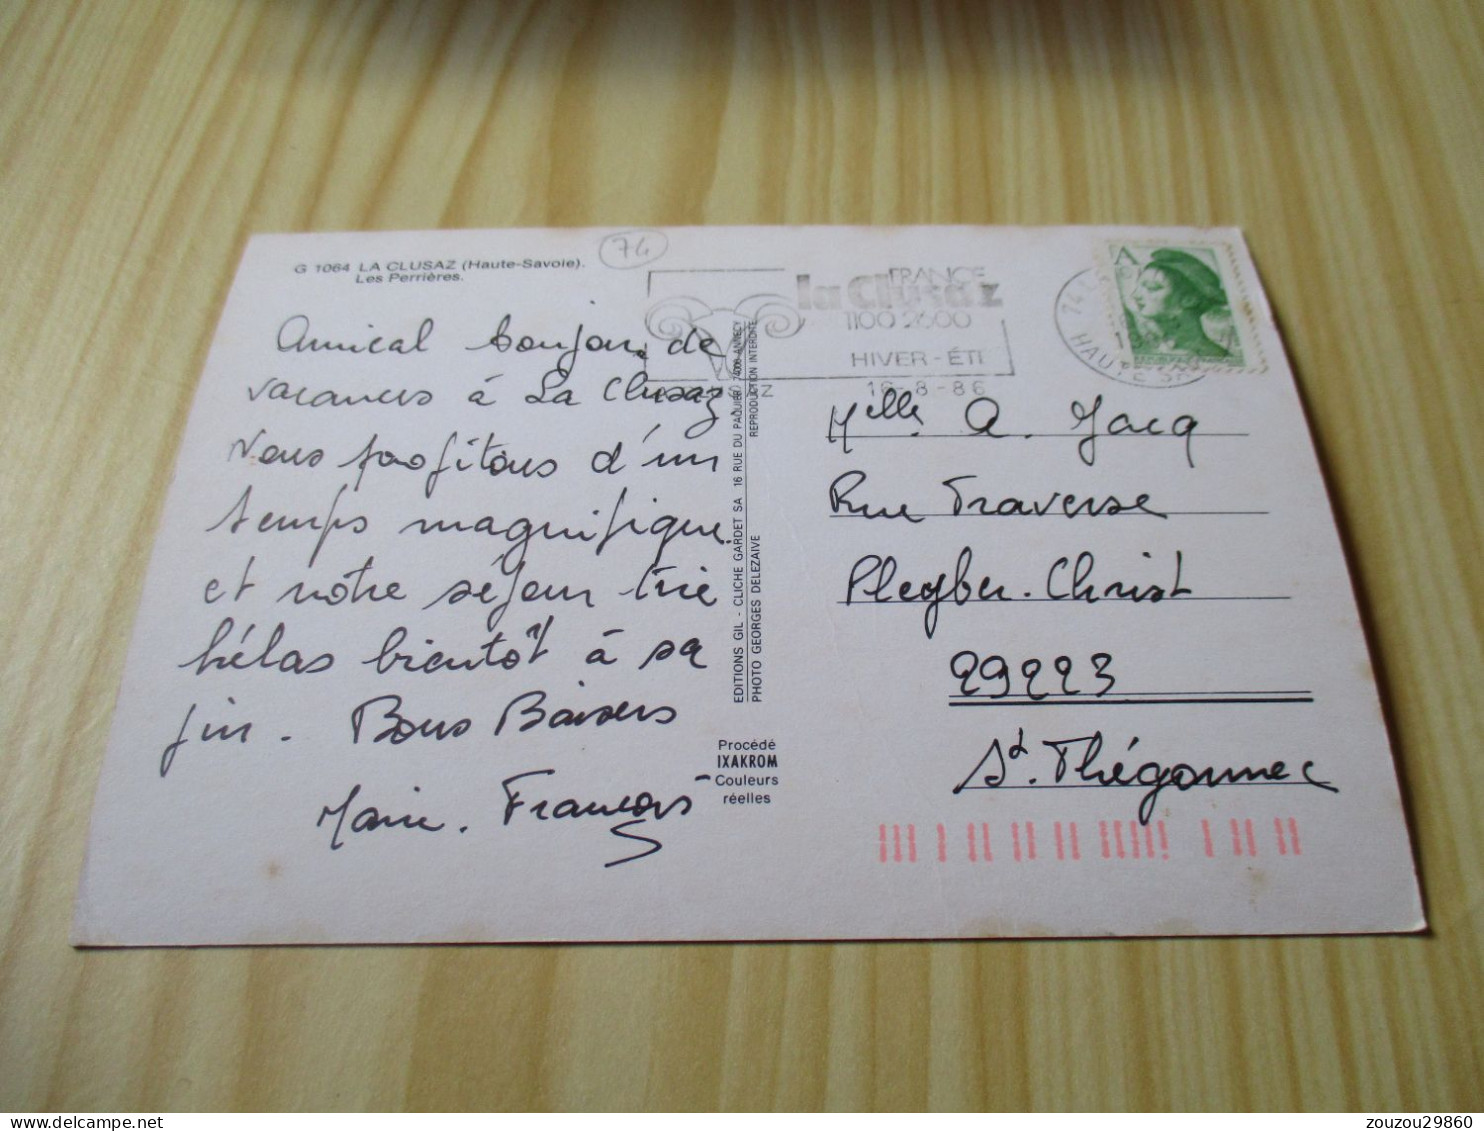 G 1064 LA CLUSAZ (Haute-Savoie).
Les Perrières.
74
Amical bonjour de
vacances à La Clusaz
Nous profitons d'un
temps magnifique
et notre séjour tire
hélas bientôt à sa
fin. Bons Baisers
Marie. François
EDITIONS GIL - CLICHE GARDET SA 16 RUE DU PAQUIER 74000 ANNECY
PHOTO GEORGES DELEZAIVE REPRODUCTION INTERDITE
Procédé
IXAKROM
Couleurs
réelles
FRANCE
la Clusaz
1100 2600
HIVER-ÉTÉ
16-8-86
HAUTE
A
Melle A. Jacq
Rue Traverse
Pleyber-Christ
29223
St. Thégonnec
zouzou29860